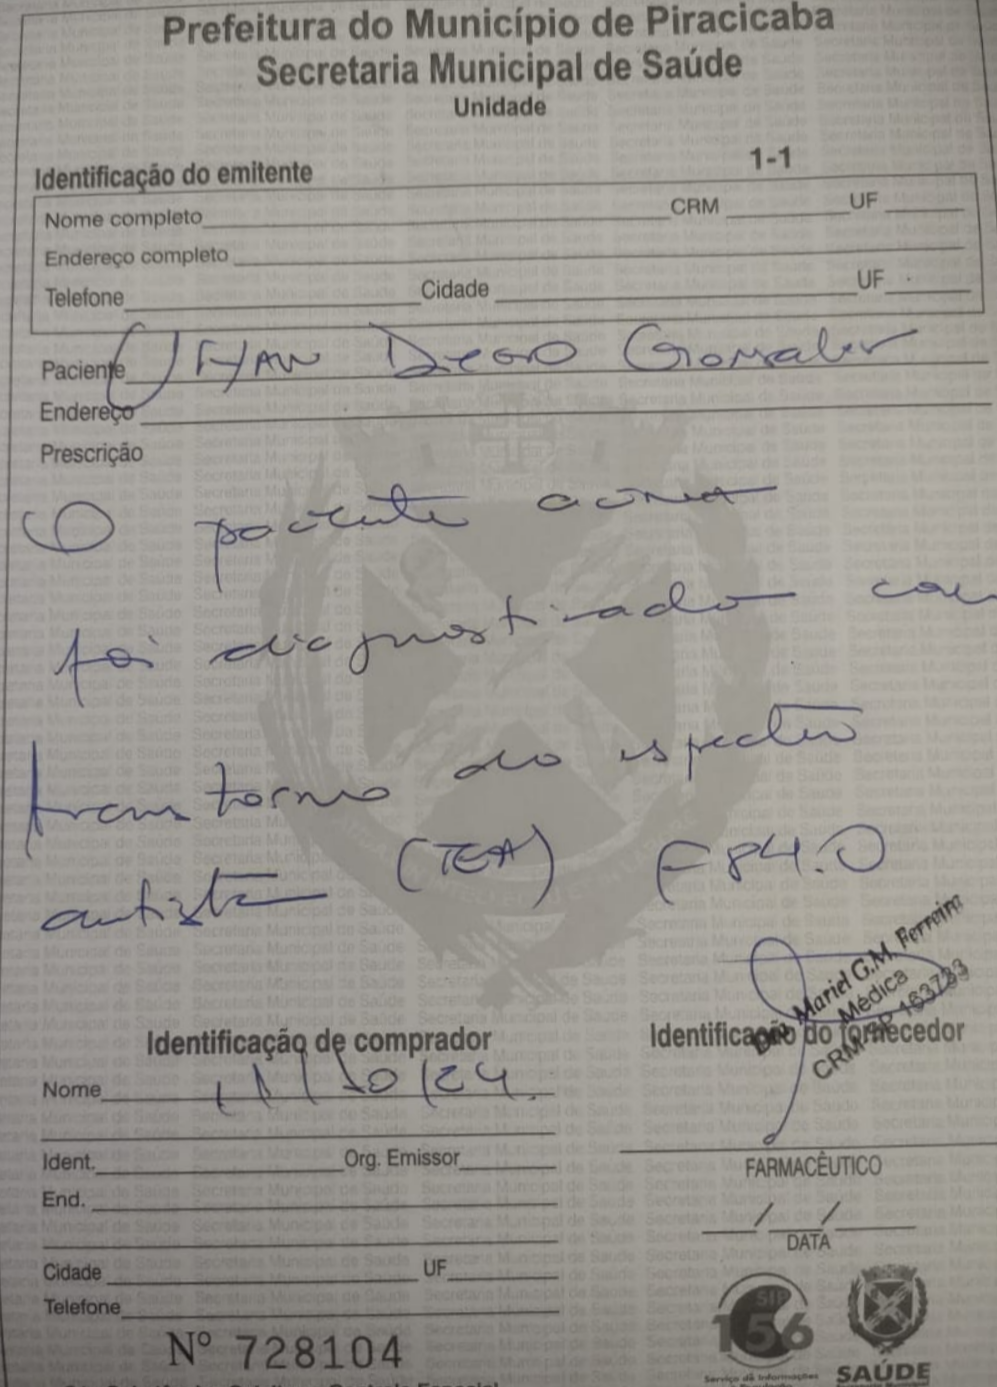 Prefeitura do Município de Piracicaba
Secretaria Municipal de Saúde
Unidade
1-1
Identificação do emitente
Nome completo CRM UF
Endereço completo
Telefone Cidade UF
Paciente Diego
Endereço
Prescrição
O paciente acima
foi diagnosticado com
transtorno do espectro
autista (TEA) F84.0
Dra. Mariel G.M. Ferreira
Médica
CRM/SP 163733
Identificação de comprador
Nome 11/10/24
Ident. Org. Emissor
End.
Cidade UF
Telefone
Nº 728104
Identificação do fornecedor
FARMACÊUTICO
/ /
DATA
SIP
156
Serviço de Informações
SAÚDE